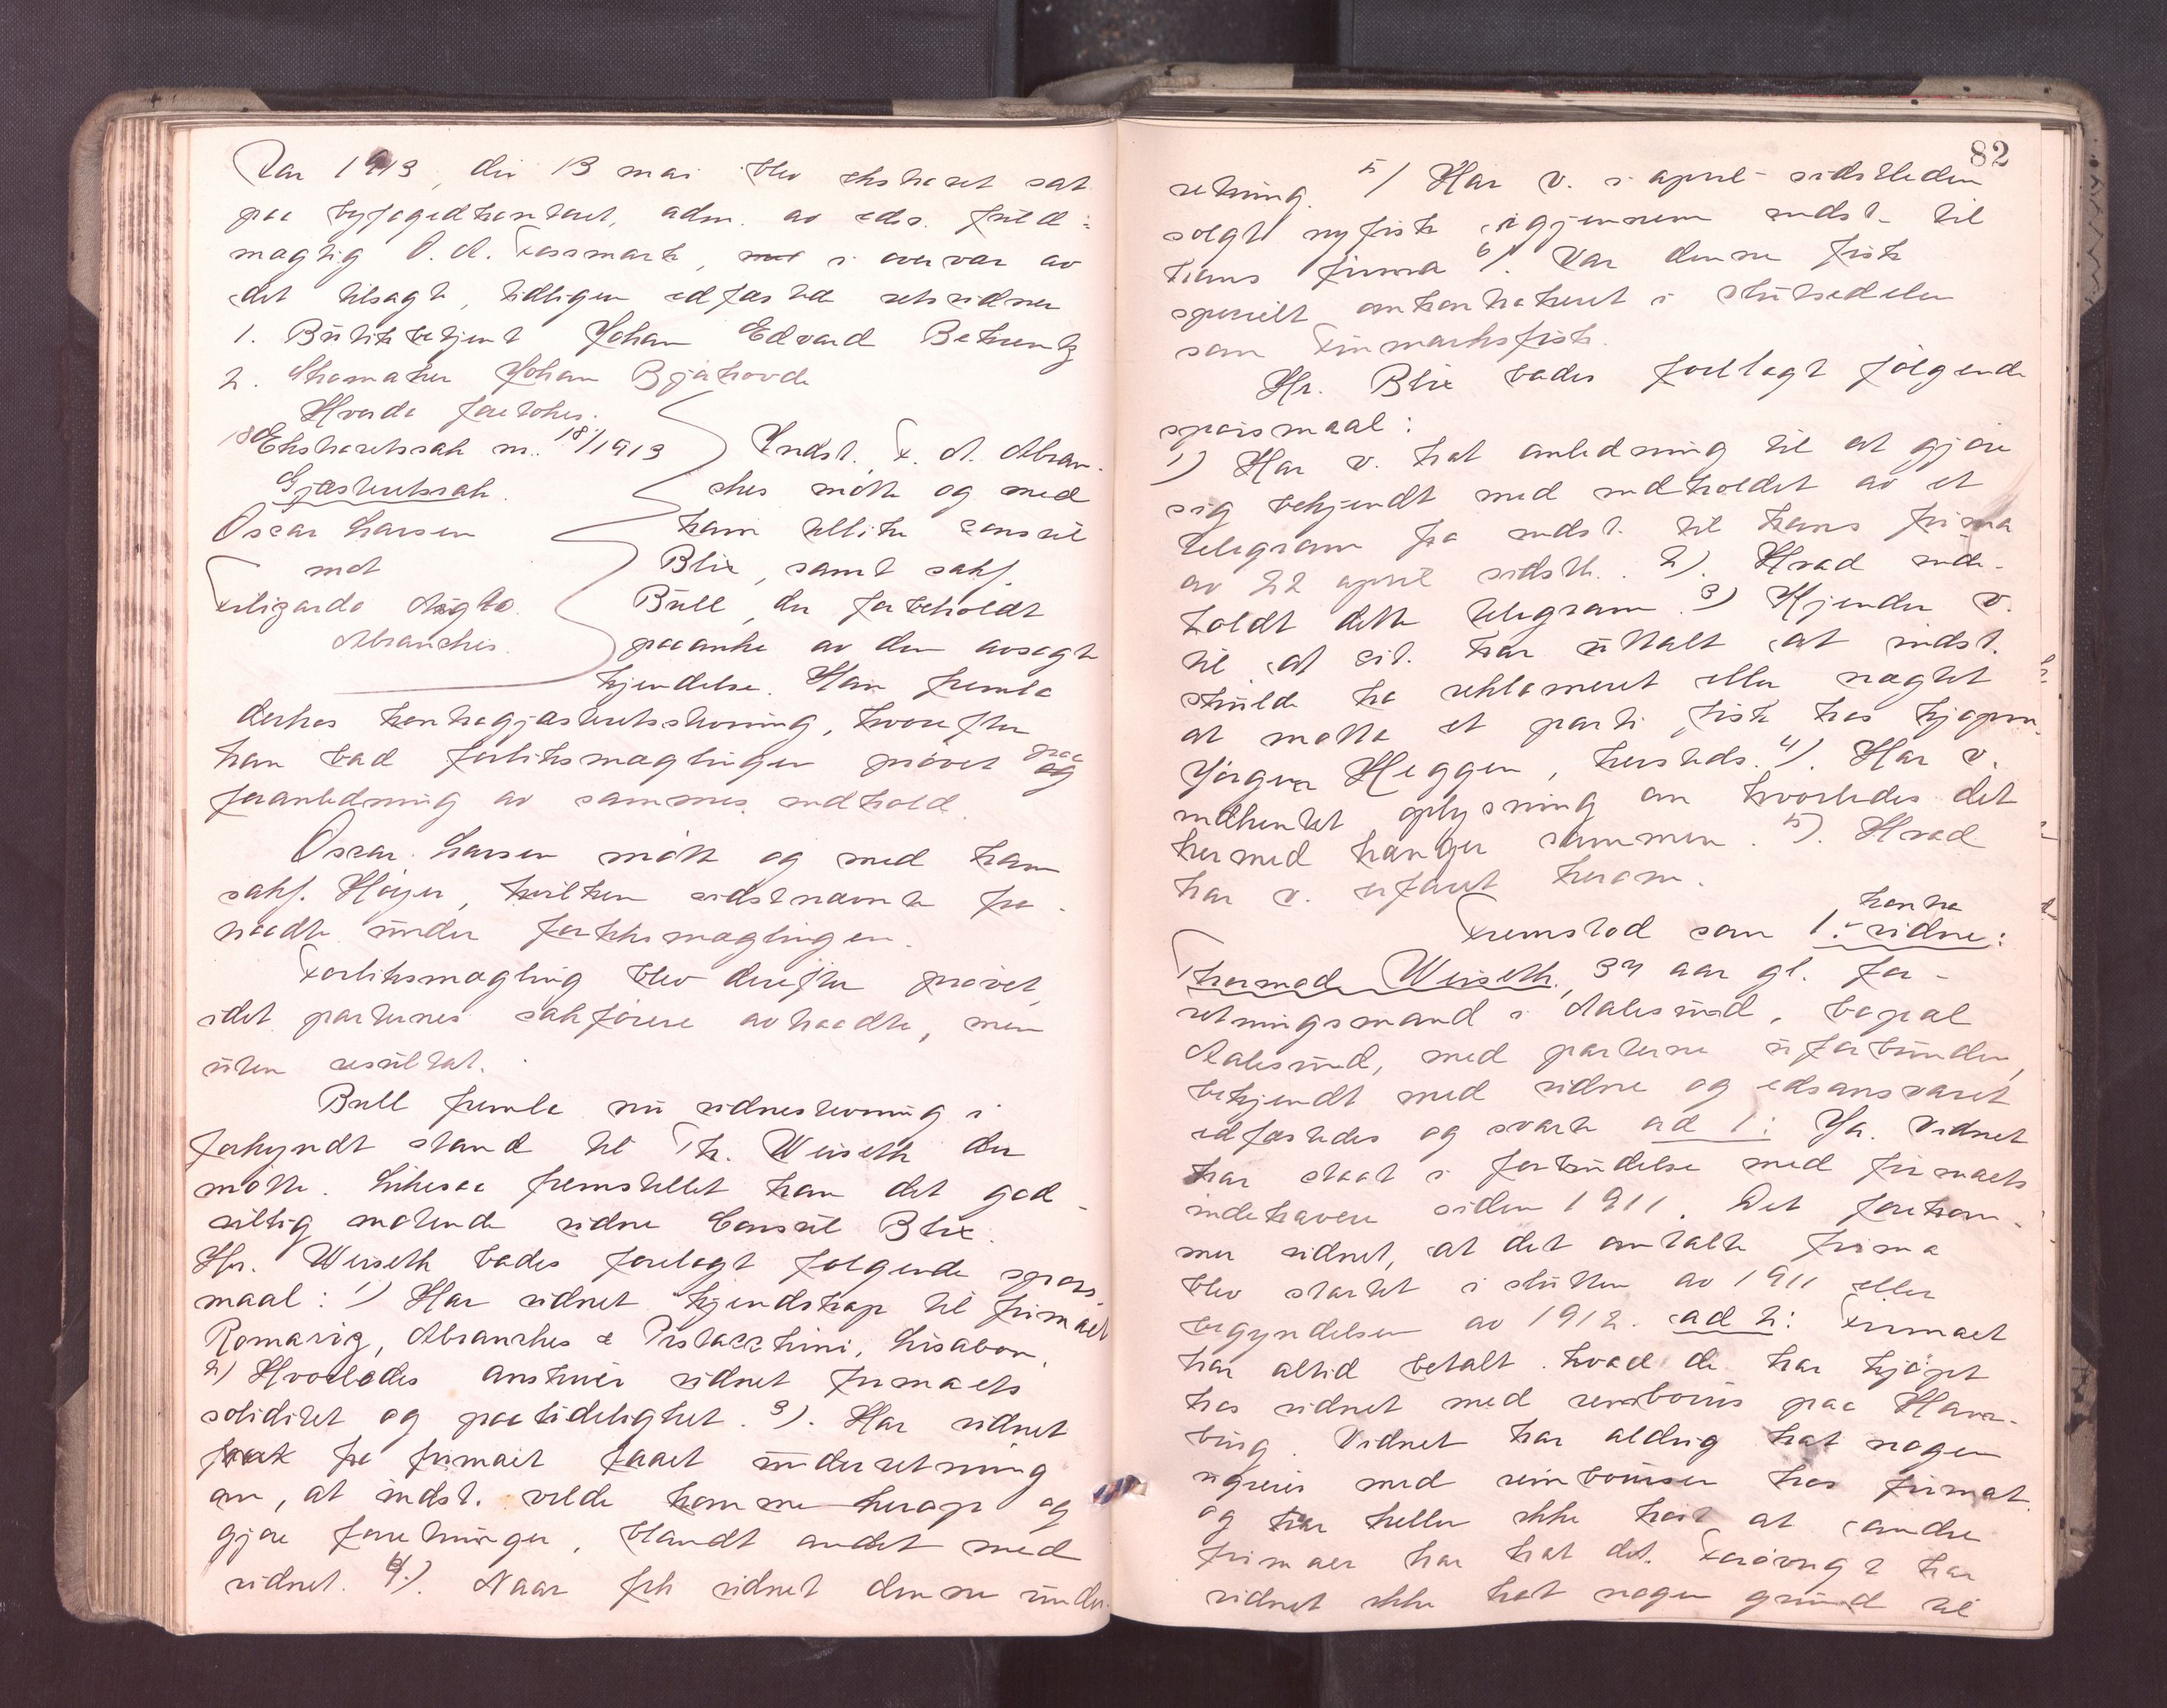 Aar 1913, den 13 mai blev ekstraret sat
paa byfogedkontoret, adm. av eds. fuld-
mægtig O. A. Fossmark, med i overvær av
det tilsagte, tidligere edfæstede retsvidner
1. Butikbetjent Johan Edvard Behrentz
2. Skomaker Johan Bjåhovde
Hvorda foretokes:
18 Ekstraretssak nr. 18/1913
Gjæsteretssak.
Oscar Larsen
mot
Felizardo Augto
Abranches.
Indst. F. A. Abran-
ches møtte og med
ham tillike consul
Blix, samt sakf.
Bull, der forbeholdt
paaanke av den avsagte
kjendelse. Han fremla
derhos kontragjæsteretsstevning, hvorefter
han bad forliksmæglingen prøvet paa
foranledning av sammes indhold.
Oscar Larsen møtte og med ham
sakf. Höyer, hvilken sidstnævnte fra-
traadte under forliksmæglingen.
Forliksmægling blev derefter prøvet,
idet parternes sakførere avtraadte, men
uten resultat.
Bull fremla nu vidnestevning i
forkyndt stand til Th. Weiseth der
møtte. Likesaa fremstillet han det god-
villig møtende vidne Consul Blix.
Hr. Weiseth bades forelagt følgende spørs-
maal: 1) Har vidnet kjendskap til firmaet
Romariz, Abranches & Pistacchini, Lisabon.
2) Hvorledes anskuer vidnet firmaets
soliditet og paalidelighet. 3). Har vidnet
fra firmaet faaet underretning
om, at indst. vilde komme herop og
gjøre forretninger, blandt andet med
vidnet. 4.). Naar fik vidnet denne under-
82
retning. 5) Har v. i april sidstleden
solgt nyfisk igjennem indst. til
hans firma 6). Var denne fisk
specielt omkontrahert i slutseddelen
som Finmarksfisk.
Hr. Blix bades forelagt følgende
spørsmaal:
1) Har v. hat anledning til at gjøre
sig bekjendt med indholdet av et
telegram fra indst. til hans firma
av 22 april sidstl. . 2). Hvad inde-
holdt dette telegram. 3) Kjender v.
til at cit. har uttalt at indst.
skulde ha reklameret eller nægtet
at motta et parti fisk hos kjøpm.
Jörgen Heggen, hersteds. 4). Har v.
indhentet oplysning om hvorledes det
hermed hænger sammen. 5). Hvad
har v. erfaret herom.
Fremstod som 1. kontra vidne:
Thormod Weiseth, 34 aar gl. for-
retningsmand i Aalesund, bopæl
Aalesund, med parterne uforbunden,
bekjendt med vidne og edsansvaret
edfæstedes og svarte ad 1: Ja. Vidnet
har staat i forbindelse med firmaets
indehavere siden 1911. Det forekom-
mer vidnet, at det omtalte firma
blev startet i slutten av 1911 eller
begyndelsen av 1912. ad 2: Firmaet
har altid betalt hvad de har kjöpt
hos vidnet med rembours paa Ham-
burg. Vidnet har aldrig hat nogen
ugreier med reimboursen hos firmaet
og har heller ikke hørt at andre
firmaer har hat det. Forøvrigt har
vidnet ikke hat nogen grund til